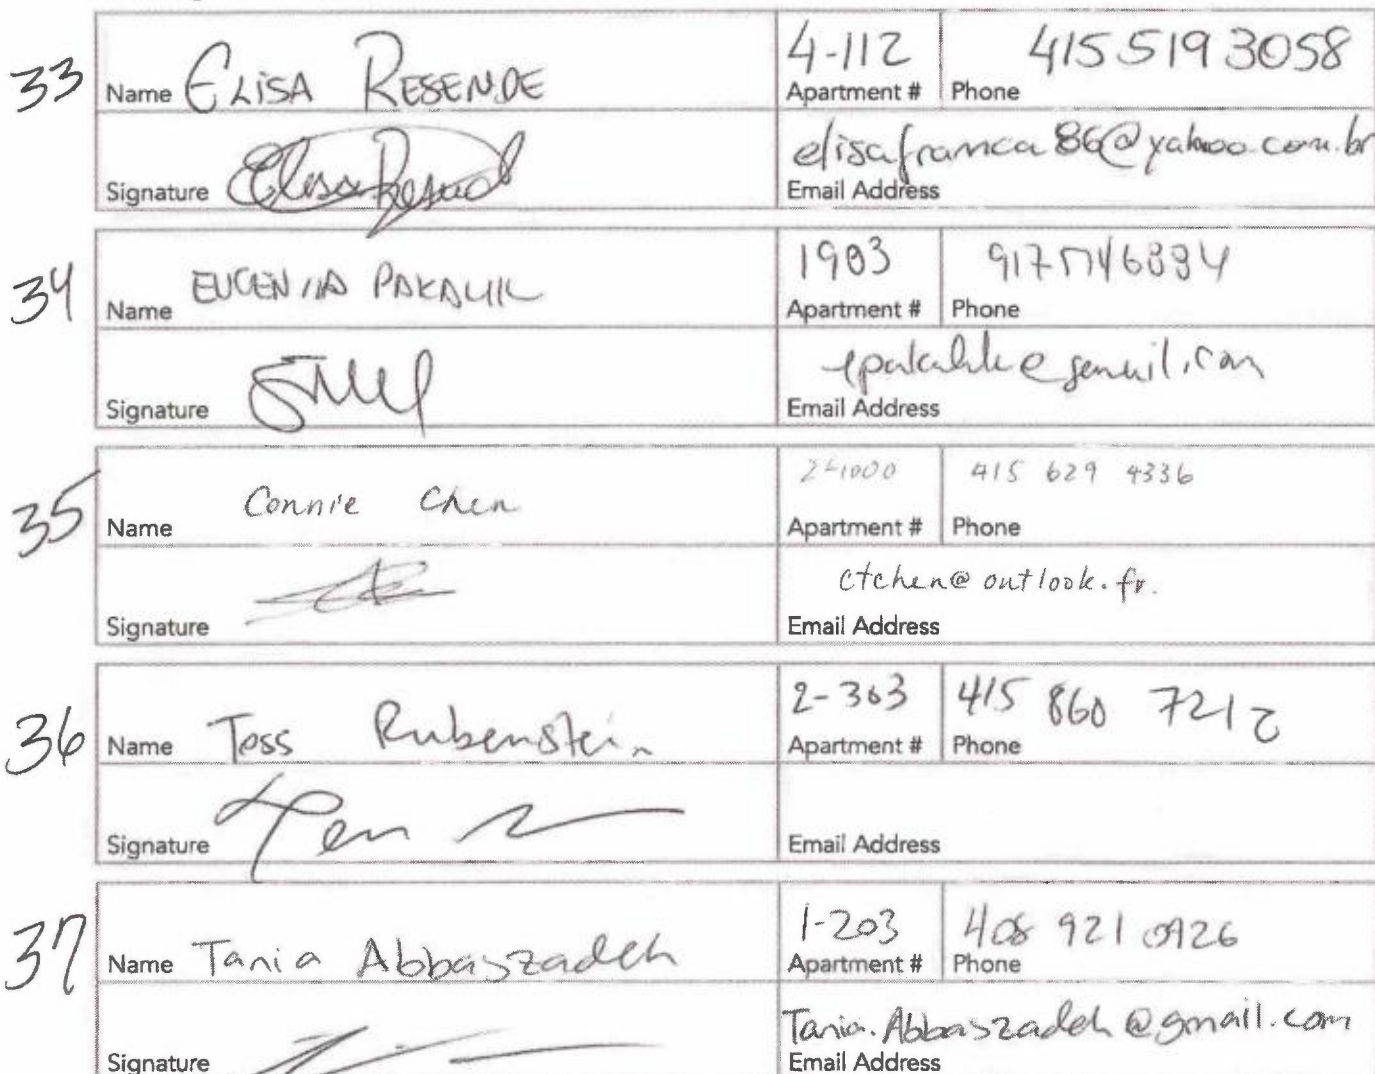 33
Name ELISA RESENDE
4-112
Apartment #
415 519 3058
Phone
Signature Elisa Resend
elisafranca86@yahoo.com.br
Email Address
34
Name EUGENIIA PAKALIK
1903
Apartment #
Phone
Signature
Email Address
35
Name Connie Chen
2-1000
Apartment #
415 629 4336
Phone
Signature
ctchen@outlook.fr.
Email Address
36
Name Tess Rubenstein
2-303
Apartment #
415 860 7212
Phone
Signature
Email Address
37
Name Tania Abbaszadeh
1-203
Apartment #
408 921 0926
Phone
Signature
Tania.Abbaszadeh@gmail.com
Email Address